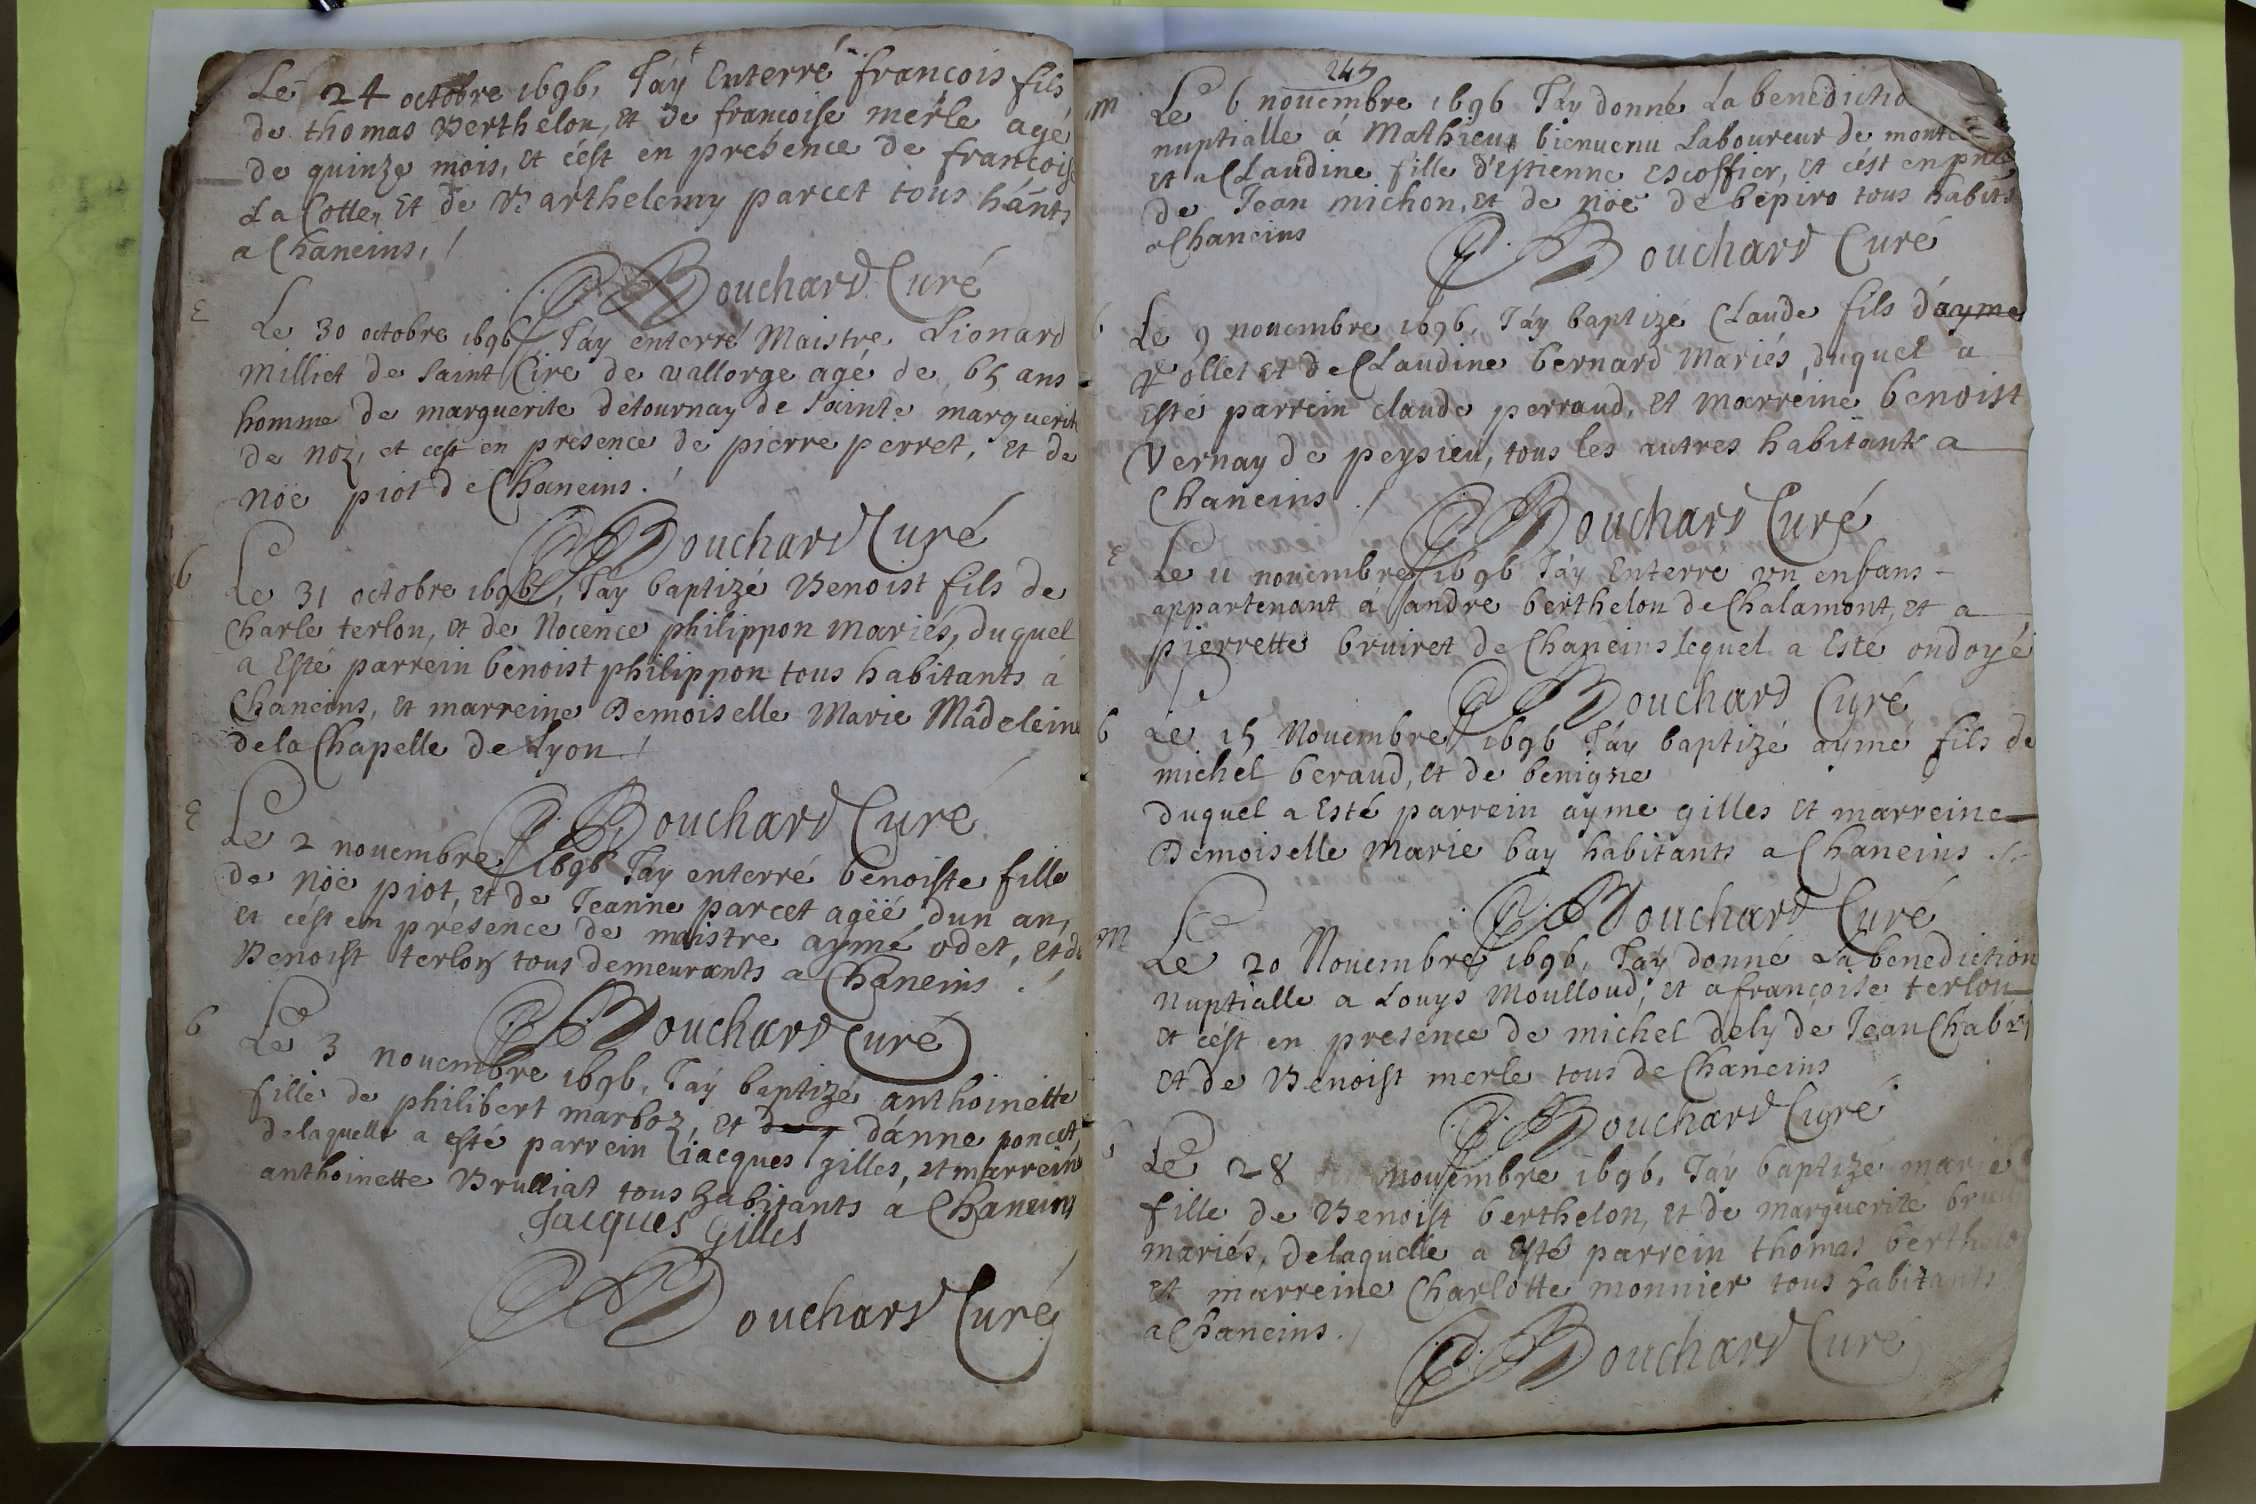 Le 24 octobre 1696, J'ay Enterré françois fils
de thomas Berthelon, et de françoise merle agé
de quinze mois, et c'est en présence de françois
La Cotte, Et de Barthelemy parcet tous hants
a Chaneins, /
Bouchard Curé
E
Le 30 octobre 1696 J'ay enterré Maistre Lionard
Milliet de Saint Cire de vallorge agé de 65 ans
homme de marguerite detournay de Sainte marguerite
de noz, et c'est en présence de pierre perret, et de
Noë piot de Chaneins. /
Bouchard Curé
b
Le 31 octobre 1696, J'ay baptizé Benoist fils de
Charle terlon, et de Nocence philippon mariés, duquel
a Esté parrein benoist philippon tous habitants à
Chaneins, et marreine Demoiselle Marie Madeleine
de la Chapelle de Lyon /
Bouchard Curé
E
Le 2 nouembre 1696 J'ay enterré benoiste fille
de Noë piot, et de Jeanne parcet ageë dun an,
et c'est en présence de maistre aymé odet, et de
Benoist terlon tous demeurants a Chaneins. /
Bouchard Curé
b
Le 3 nouembre 1696, J'ay baptizé anthoinette
fille de philibert marboz, et d'anne poncet,
delaquelle a esté parrein jacques gilles, et marreine
anthoinette Brulliat tous habitants à Chaneins
Jacques Gilles
Bouchard Curé
245
m
Le 6 nouembre 1696 J'ay donné La benedictio
nuptialle à Mathieu bienuenu Laboureur de
et a Claudine fille d'Estienne Escoffier, et c'est en pnce
de Jean michon, et de noë de bépiro tous habits
a Chaneins
Bouchard Curé
b
Le 9 nouembre 1696, J'ay baptizé Claude fils d'ayme
et de Claudine bernard Mariés, duquel a
Esté parrein claude perraud, et marreine benoist
Vernay de peysieu, tous les autres habitants a
Chaneins /
Bouchard Curé
E
Le 11 nouembre 1696 J'ay Enterre vn enfans
appartenant à andré berthelon de Chalamont, et a
pierrette bruiret de Chaneins lequel a Esté ondoyé
Bouchard Curé
b
Le 15 Nouembre 1696 J'ay baptizé aymé fils de
michel beraud, et de benigne
duquel a Esté parrein ayme gilles et marreine
Demoiselle Marie bay habitants a Chaneins
Bouchard Curé
m
Le 20 Nouembre 1696, J'ay donné La benediction
Nuptialle a Louys Moulloud, et a françoise terlon
et c'est en presence de michel dely de Jean
et de Benoist merle tous de Chaneins
Bouchard Curé
Le 28 nouembre 1696, J'ay baptize marie
fille de Benoist berthelon, et de marguerite
mariés, delaquelle a Esté parrein thomas berthelon
et marreine Charlotte monnier tous habitants
a Chaneins. /
Bouchard Curé